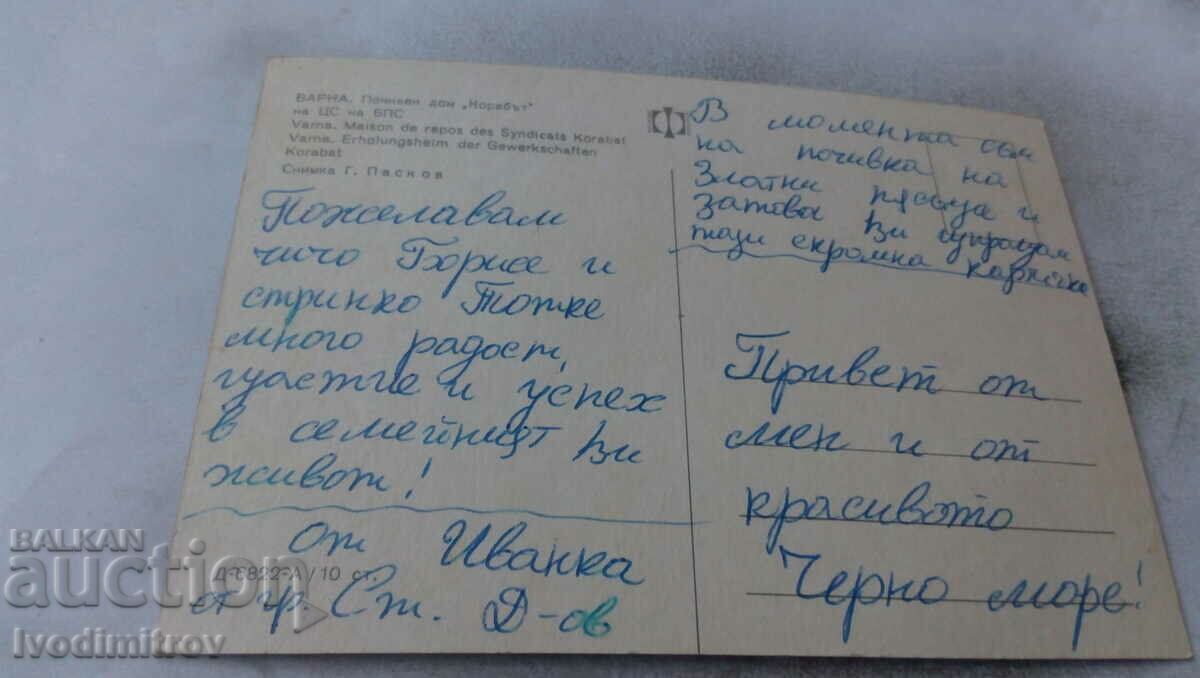 ВАРНА. Почивен дом „Корабът"
на ЦС на БПС
Varna. Maison de repos des Syndicats Korabat
Varna. Erholungsheim der Gewerkschaften
Korabat
Снимка Г. Пасков
Пожелавам
чичо Борисе и
стринко Тотке
много радост,
щастие и успех
в семейният ви
живот!
от Иванка
Д-6822-А/10 ст.
от гр. Ст. Д-ов
В момента съм
на почивка на
Златни пясъци и
затова ви изпращам
тази скромна картичка
Привет от
мен и от
красивото
Черно море!
BALKAN
auction
Ivodimitrov